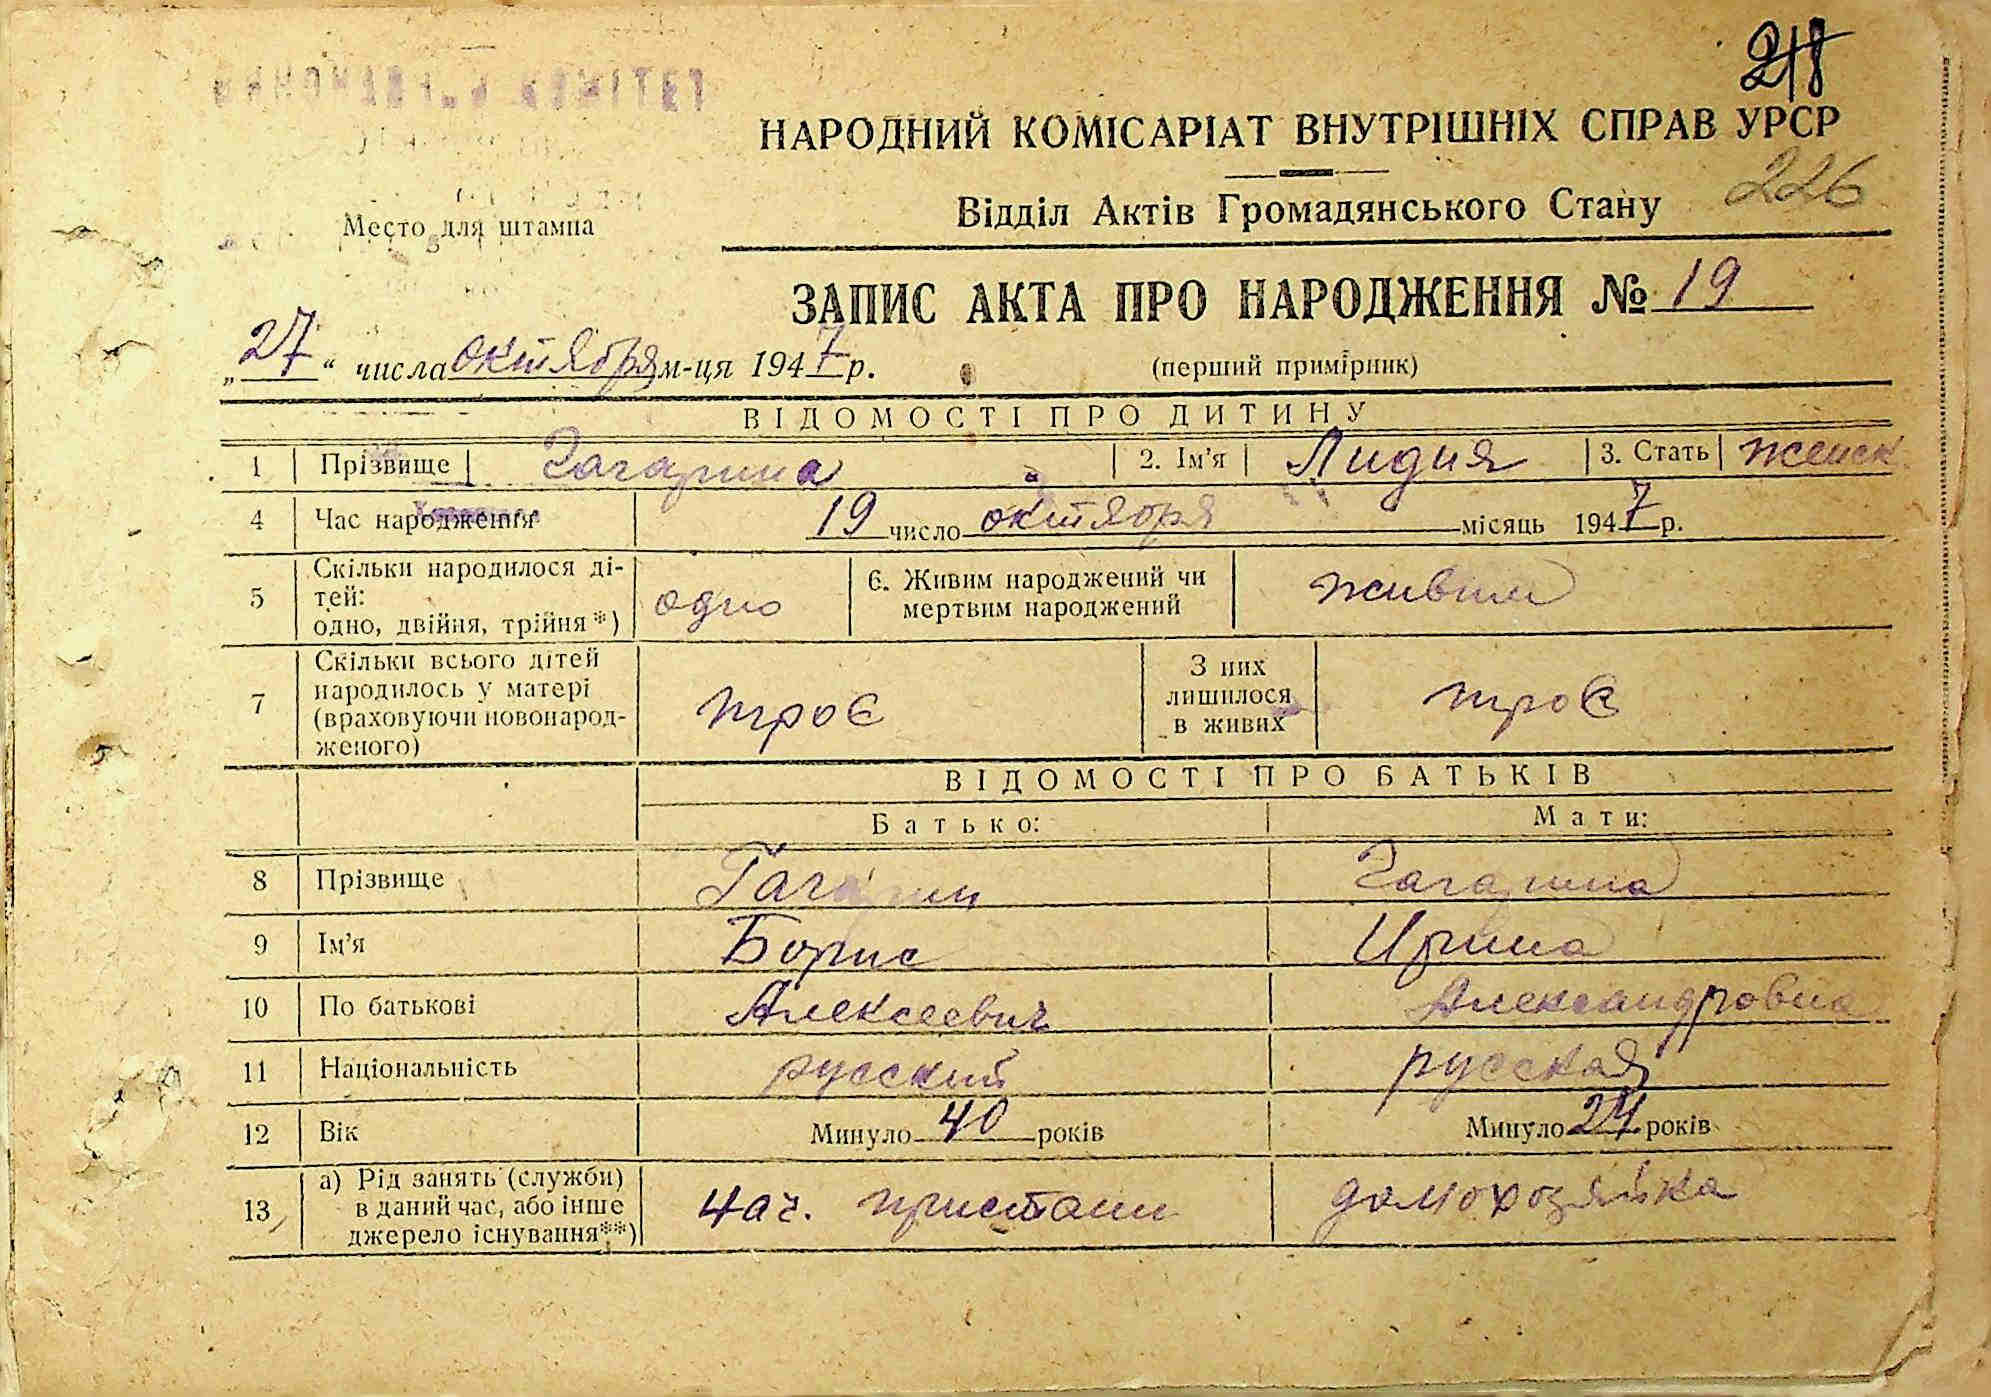 218
НАРОДНИЙ КОМІСАРІАТ ВНУТРІШНІХ СПРАВ УРСР
226
Відділ Актів Громадянського Стану
Место для штампа
ЗАПИС АКТА ПРО НАРОДЖЕННЯ № 19
„27“ числа октября м-ця 1947 р.
(перший примірник)
ВІДОМОСТІ ПРО ДИТИНУ
1 Прізвище Гагарина 2. Ім'я Лидия 3. Стать женск
4 Час народження 19 число октября місяць 1947 р.
5 Скільки народилося ді-
тей:
одно, двійня, трійня*) одно
6. Живим народжений чи
мертвим народжений живим
7 Скільки всього дітей
народилось у матері
(враховуючи новонарод-
женого) троє
З них
лишилося
в живих троє
ВІДОМОСТІ ПРО БАТЬКІВ
Батько: Мати:
8 Прізвище Гагарин Гагарина
9 Ім'я Борис Ирина
10 По батькові Алексеевич Александровна
11 Національність русский русская
12 Вік Минуло 40 років Минуло 24 років
13 а) Рід занять (служби)
в даний час, або інше
джерело існування**) нач. пристани домохозяйка